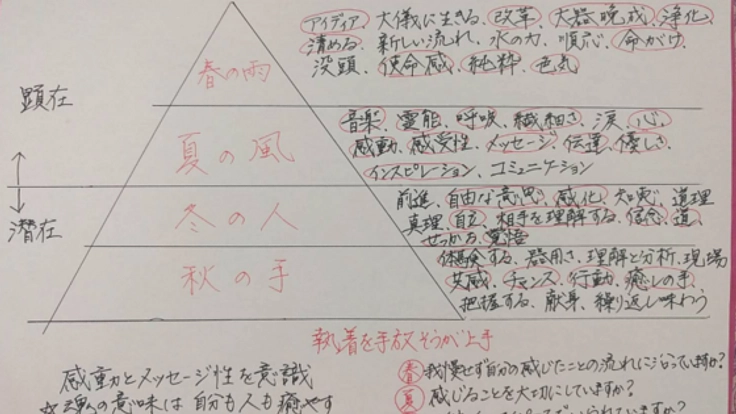 アイディア、大儀に生きる、改革、大器晩成、浄化、
清める、新しい流れ、水の力、順応、命がけ、
没頭、使命感、純粋、色気
春の雨
顕在
音楽、霊能、呼吸、繊細さ、涙、心、
感動、感受性、メッセージ、伝達、優しさ、
インスピレーション、コミュニケーション
夏の風
前進、自由な意思、感化、知恵、道理
真理、自立、相手を理解する、信念、道、
せっかち、覚悟
冬の人
潜在
体験する、器用さ、理解と分析、現場
共感、チャンス、行動、癒しの手、
把握する、献身、繰り返し味わう
秋の手
執着を手放そうが上手
感動とメッセージ性を意識
魂の意味は自分も人も癒やす
春 我慢せず自分の感じたことの流れに沿っていますか?
夏 感じることを大切にしていますか?